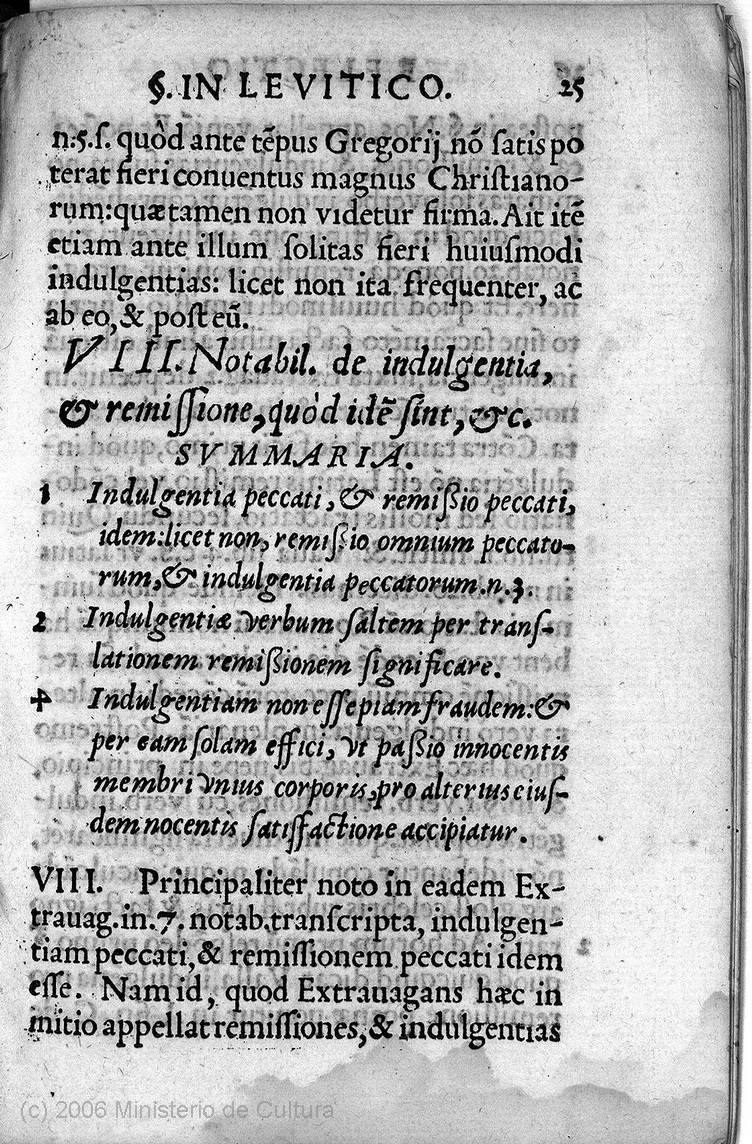 §. IN LEVITICO. 25
n.5.ſ. quòd ante tẽpus Gregorij nõ ſatis po
terat fieri conuentus magnus Chriſtiano-
rum: quæ tamen non videtur firma. Ait itẽ
etiam ante illum ſolitas fieri huiuſmodi
indulgentias: licet non ita frequenter, ac
ab eo, & poſt eũ.
VIII. Notabil. de indulgentia,
& remiſſione, quòd idẽ ſint, &c.
SVMMARIA.
1 Indulgentia peccati, & remißio peccati,
idem: licet non, remißio omnium peccato-
rum, & indulgentia peccatorum. n. 3.
2 Indulgentiæ verbum ſaltem per tranſ-
lationem remißionem ſignificare.
4 Indulgentiam non eſſe piam fraudem: &
per eam ſolam effici, vt paßio innocentis
membri vnius corporis, pro alterius eiuſ-
dem nocentis ſatisfactione accipiatur.
VIII. Principaliter noto in eadem Ex-
trauag. in. 7. notab. tranſcripta, indulgen-
tiam peccati, & remiſſionem peccati idem
eſſe. Nam id, quod Extrauagans hæc in
initio appellat remiſſiones, & indulgentias
(c) 2006 Ministerio de Cultura